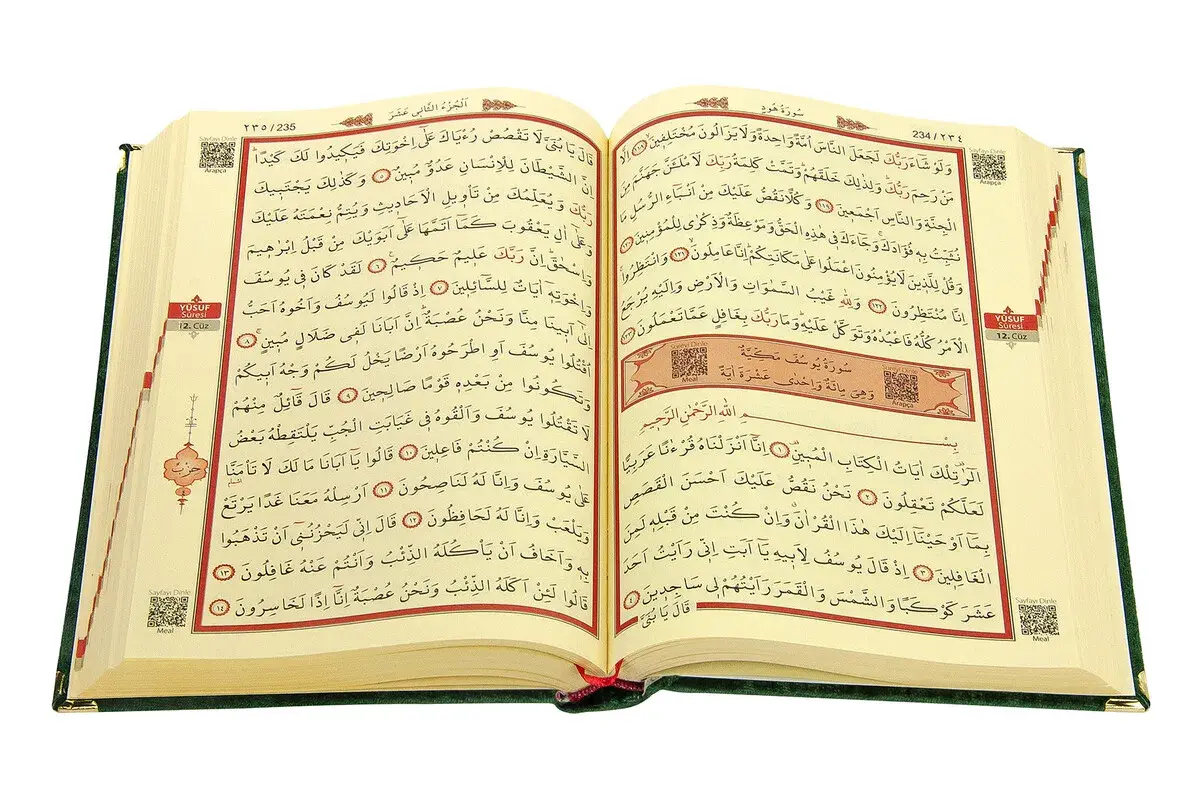 سورة هود
234/٢٣٤
Sayfayı Dinle
Arapça
وَلَوْ شَاءَ رَبُّكَ لَجَعَلَ النَّاسَ اُمَّةً وَاحِدَةً وَلَا يَزَالُونَ مُخْتَلِفِينَ ﴿١١٨﴾ اِلَّا
مَنْ رَحِمَ رَبُّكَ وَلِذٰلِكَ خَلَقَهُمْ وَتَمَّتْ كَلِمَةُ رَبِّكَ لَاَمْلَئَنَّ جَهَنَّمَ مِنَ
الْجِنَّةِ وَالنَّاسِ اَجْمَعِينَ ﴿١١٩﴾ وَكُلًّا نَقُصُّ عَلَيْكَ مِنْ اَنْبَاءِ الرُّسُلِ مَا
نُثَبِّتُ بِهِ فُؤَادَكَ وَجَاءَكَ فِي هٰذِهِ الْحَقُّ وَمَوْعِظَةٌ وَذِكْرٰى لِلْمُؤْمِنِينَ ﴿١٢٠﴾
وَقُلْ لِلَّذِينَ لَا يُؤْمِنُونَ اعْمَلُوا عَلٰى مَكَانَتِكُمْ اِنَّا عَامِلُونَ ﴿١٢١﴾ وَانْتَظِرُوا
اِنَّا مُنْتَظِرُونَ ﴿١٢٢﴾ وَلِلّٰهِ غَيْبُ السَّمٰوَاتِ وَالْاَرْضِ وَاِلَيْهِ يُرْجَعُ
الْاَمْرُ كُلُّهُ فَاعْبُدْهُ وَتَوَكَّلْ عَلَيْهِ وَمَا رَبُّكَ بِغَافِلٍ عَمَّا تَعْمَلُونَ ﴿١٢٣﴾
YÛSUF
Sûresi
12. Cüz
سُورَةُ يُوسُفَ مَكِّيَّةٌ
وَهِيَ مِائَةٌ وَاِحْدٰى عَشْرَةَ اٰيَةً
Sûreyi Dinle
Arapça
Sûreyi Dinle
Meal
بِسْمِ اللّٰهِ الرَّحْمٰنِ الرَّحِيمِ
الٓرٰ تِلْكَ اٰيَاتُ الْكِتَابِ الْمُبِينِ ﴿١﴾ اِنَّا اَنْزَلْنَاهُ قُرْءٰنًا عَرَبِيًّا
لَعَلَّكُمْ تَعْقِلُونَ ﴿٢﴾ نَحْنُ نَقُصُّ عَلَيْكَ اَحْسَنَ الْقَصَصِ
بِمَا اَوْحَيْنَا اِلَيْكَ هٰذَا الْقُرْاٰنَ وَاِنْ كُنْتَ مِنْ قَبْلِهِ لَمِنَ
الْغَافِلِينَ ﴿٣﴾ اِذْ قَالَ يُوسُفُ لِاَبِيهِ يَا اَبَتِ اِنِّي رَاَيْتُ اَحَدَ
عَشَرَ كَوْكَبًا وَالشَّمْسَ وَالْقَمَرَ رَاَيْتُهُمْ لِي سَاجِدِينَ ﴿٤﴾
قَالَ يَا بُنَيَّ
Sayfayı Dinle
Meal
اَلْجُزْءُ الثَّانِي عَشَرَ
٢٣٥/235
Sayfayı Dinle
Arapça
قَالَ يَا بُنَيَّ لَا تَقْصُصْ رُءْيَاكَ عَلٰى اِخْوَتِكَ فَيَكِيدُوا لَكَ كَيْدًا
اِنَّ الشَّيْطَانَ لِلْاِنْسَانِ عَدُوٌّ مُبِينٌ ﴿٥﴾ وَكَذٰلِكَ يَجْتَبِيكَ
رَبُّكَ وَيُعَلِّمُكَ مِنْ تَأْوِيلِ الْاَحَادِيثِ وَيُتِمُّ نِعْمَتَهُ عَلَيْكَ
وَعَلٰى اٰلِ يَعْقُوبَ كَمَا اَتَمَّهَا عَلٰى اَبَوَيْكَ مِنْ قَبْلُ اِبْرٰهِيمَ
وَاِسْحٰقَ اِنَّ رَبَّكَ عَلِيمٌ حَكِيمٌ ﴿٦﴾ لَقَدْ كَانَ فِي يُوسُفَ
وَاِخْوَتِهِ اٰيَاتٌ لِلسَّائِلِينَ ﴿٧﴾ اِذْ قَالُوا لَيُوسُفُ وَاَخُوهُ اَحَبُّ
اِلٰى اَبِينَا مِنَّا وَنَحْنُ عُصْبَةٌ اِنَّ اَبَانَا لَفِي ضَلَالٍ مُبِينٍ ﴿٨﴾
اُقْتُلُوا يُوسُفَ اَوِ اطْرَحُوهُ اَرْضًا يَخْلُ لَكُمْ وَجْهُ اَبِيكُمْ
وَتَكُونُوا مِنْ بَعْدِهِ قَوْمًا صَالِحِينَ ﴿٩﴾ قَالَ قَائِلٌ مِنْهُمْ
لَا تَقْتُلُوا يُوسُفَ وَاَلْقُوهُ فِي غَيَابَتِ الْجُبِّ يَلْتَقِطْهُ بَعْضُ
السَّيَّارَةِ اِنْ كُنْتُمْ فَاعِلِينَ ﴿١٠﴾ قَالُوا يَا اَبَانَا مَا لَكَ لَا تَأْمَنَّا
عَلٰى يُوسُفَ وَاِنَّا لَهُ لَنَاصِحُونَ ﴿١١﴾ اَرْسِلْهُ مَعَنَا غَدًا يَرْتَعْ
وَيَلْعَبْ وَاِنَّا لَهُ لَحَافِظُونَ ﴿١٢﴾ قَالَ اِنِّي لَيَحْزُنُنِي اَنْ تَذْهَبُوا
بِهِ وَاَخَافُ اَنْ يَأْكُلَهُ الذِّئْبُ وَاَنْتُمْ عَنْهُ غَافِلُونَ ﴿١٣﴾
قَالُوا لَئِنْ اَكَلَهُ الذِّئْبُ وَنَحْنُ عُصْبَةٌ اِنَّا اِذًا لَخَاسِرُونَ ﴿١٤﴾
YÛSUF
Sûresi
12. Cüz
حزب
Sayfayı Dinle
Meal